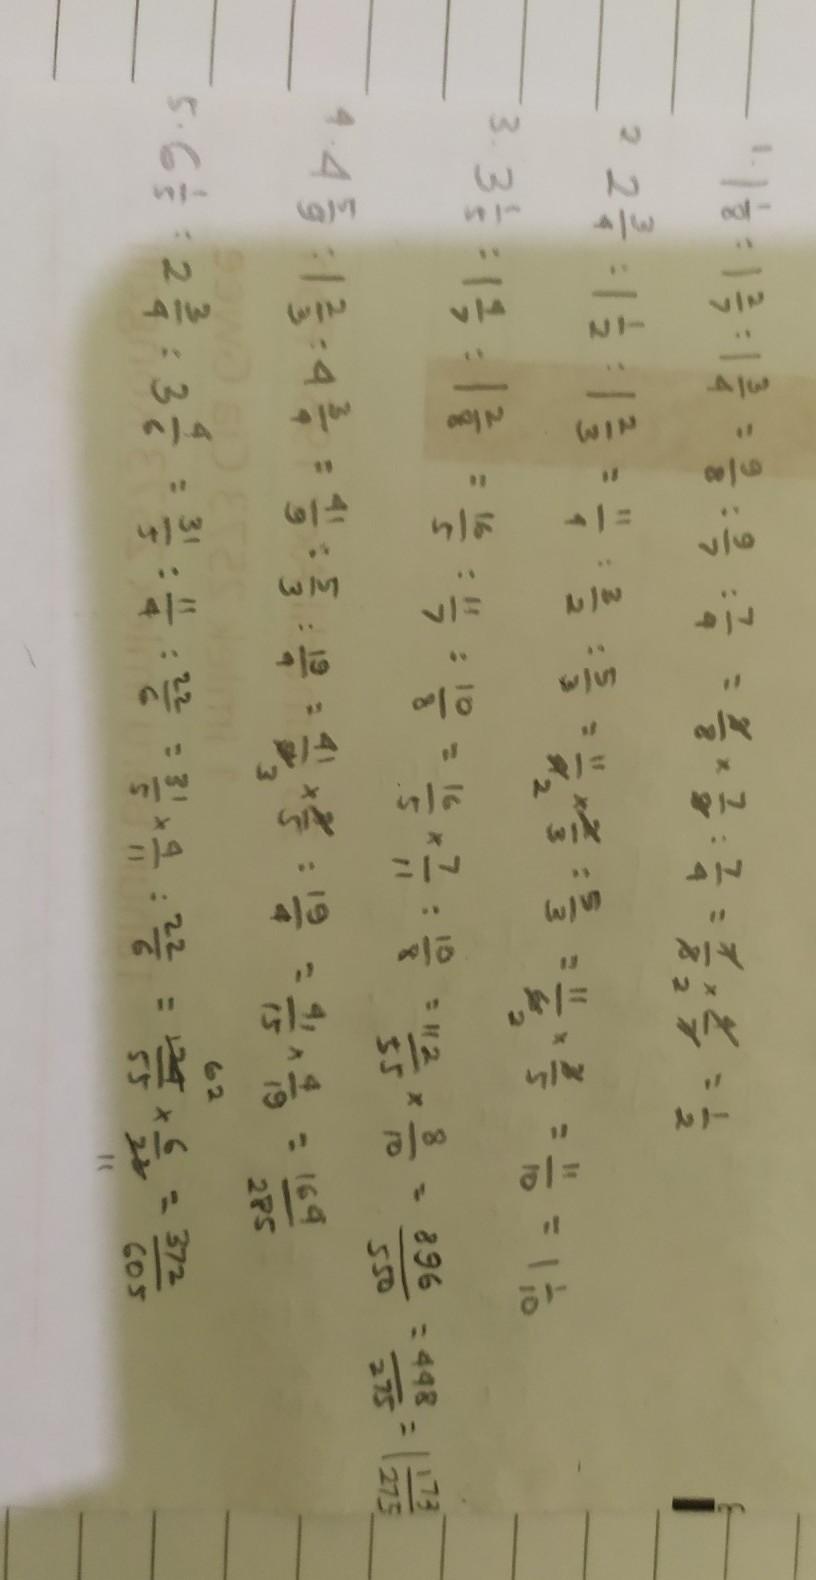 1. 1 1/8 : 1 2/7 : 1 3/4 = 9/8 : 9/7 : 7/4 = 9/8 × 7/9 : 7/4 = 7/8 2 × 4/7 = 1/2
2. 2 3/4 : 1 1/2 : 1 2/3 = 11/4 : 3/2 : 5/3 = 11/4 2 × 2/3 : 5/3 = 11/6 2 × 3/5 = 11/10 = 1 1/10
3. 3 1/5 : 1 4/7 : 1 2/8 = 16/5 : 11/7 : 10/8 = 16/5 × 7/11 : 10/8 = 112/55 × 8/10 = 896/550 = 448/275 = 1 173/275
4. 4 5/9 : 1 2/3 : 4 3/4 = 41/9 : 5/3 : 19/4 = 41/9 3 × 3/5 : 19/4 = 41/15 × 4/19 = 164/285
5. 6 1/5 : 2 3/4 : 3 4/6 = 31/5 : 11/4 : 22/6 = 31/5 × 4/11 : 22/6 = 62 124/55 × 6/22 11 = 372/605